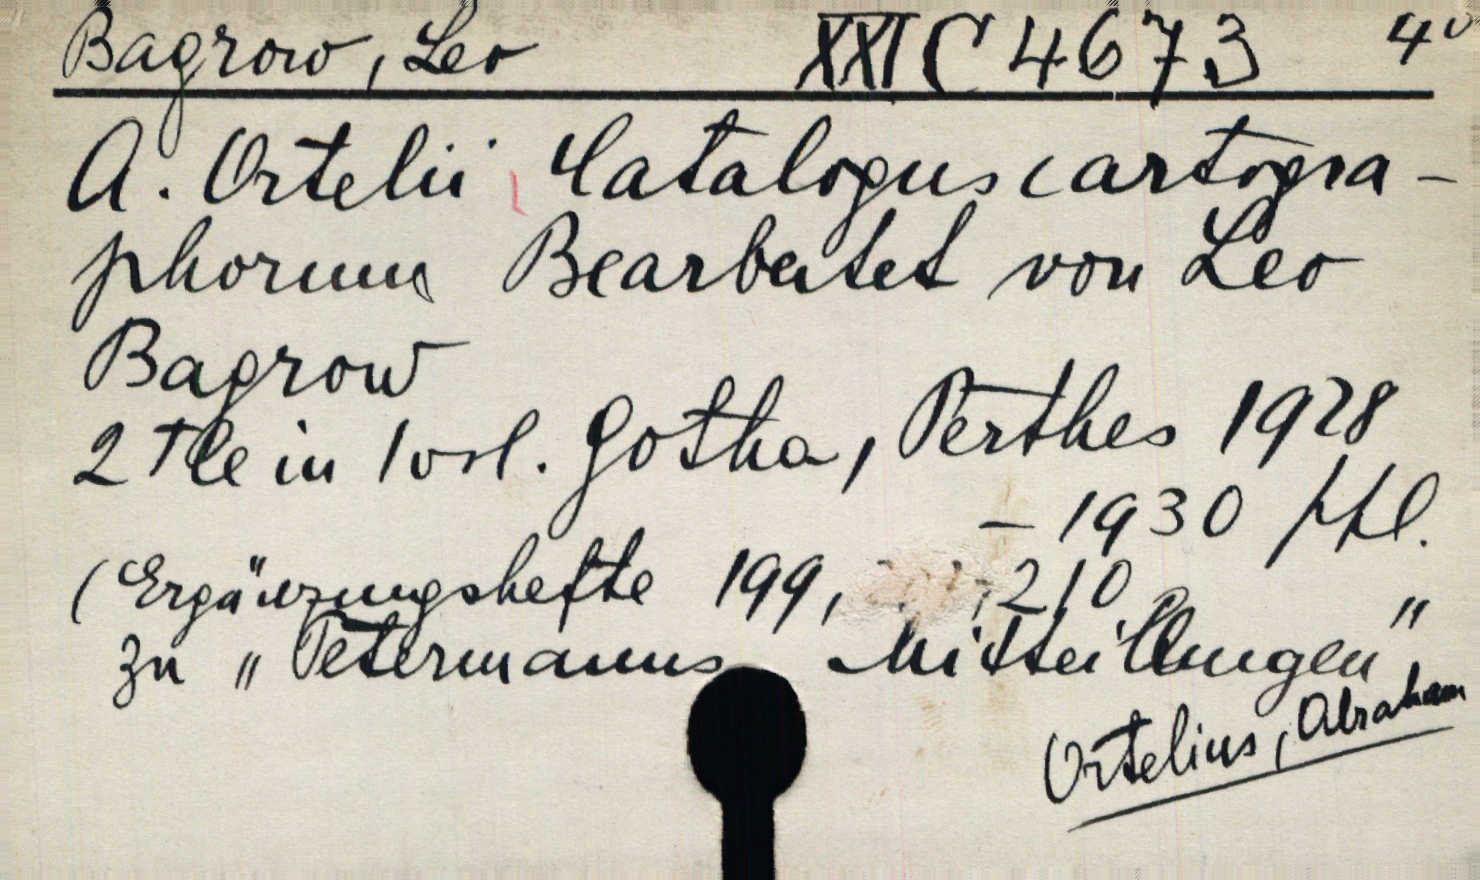 Bagrow, Leo XXI C 4673 4°
A. Ortelii Catalogus cartogra-
phorum Bearbeitet von Leo
Bagrow
2 Tle in 1 vol. Gotha, Perthes 1928
- 1930
(Ergänzungshefte 199, 210
zu „Petermanns Mitteilungen"
Ortelius, Abraham